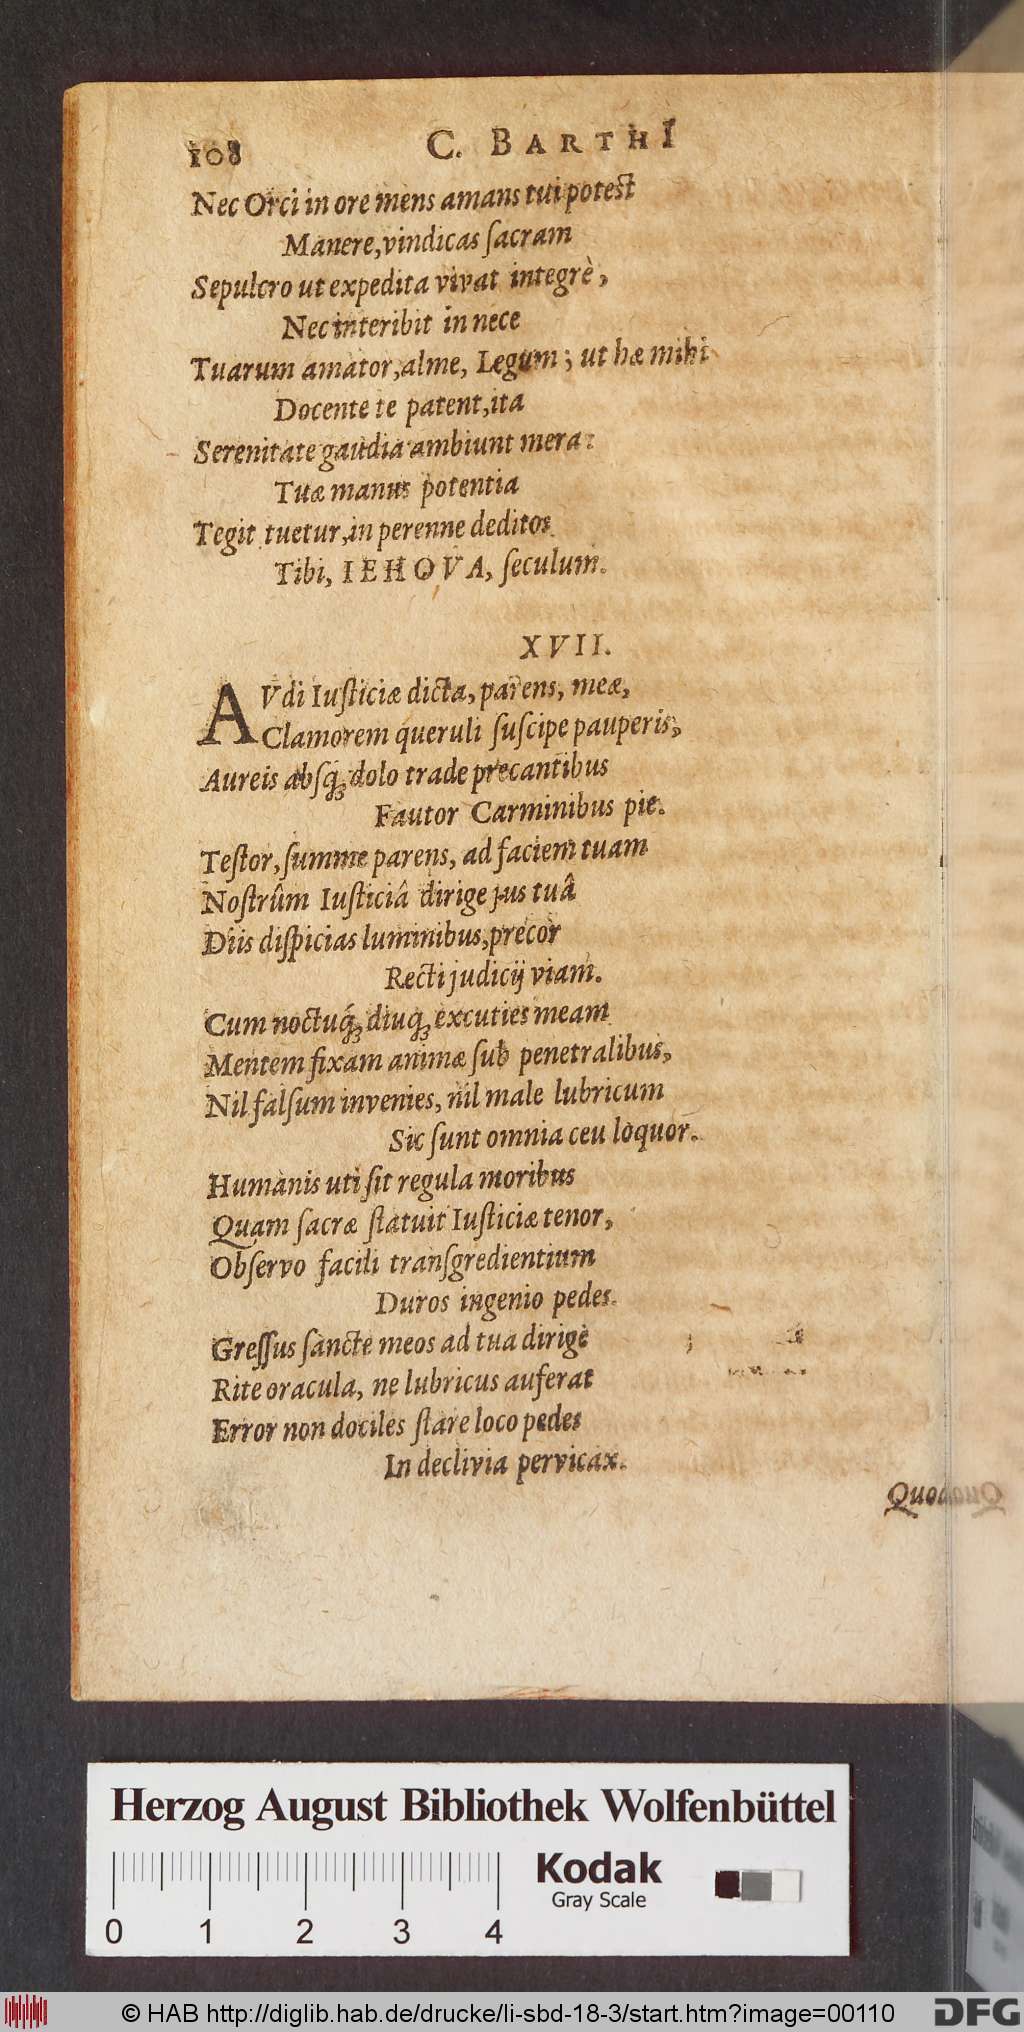 108 C. BARTHI
Nec Orci in ore mens amans tui potest
Manere, vindicas ſacram
Sepulcro ut expedita vivat integrè,
Nec interibit in nece
Tuarum amator, alme, Legum; ut hæ mihi
Docente te patent, ita
Serenitate gaudia ambiunt mera:
Tuæ manus potentia
Tegit tuetur, in perenne deditos
Tibi, IEHOVA, ſeculum.
XVII.
AVdi Iuſticiæ dicta, parens, meæ,
Clamorem queruli ſuſcipe pauperis,
Aureis abſq́; dolo trade precantibus
Fautor Carminibus pie.
Teſtor, ſumme parens, ad faciem tuam
Noſtrûm Iuſticiâ dirige jus tuâ
Diis diſpicias luminibus, precor
Recti judicij viam.
Cum noctuq́; diuq́; excuties meam
Mentem fixam animæ ſub penetralibus,
Nil falſum invenies, nil male lubricum
Sic ſunt omnia ceu loquor.
Humanis uti ſit regula moribus
Quam ſacræ ſtatuit Iuſticiæ tenor,
Obſervo facili tranſgredientium
Duros ingenio pedes.
Greſſus ſancte meos ad tua dirige
Rite oracula, ne lubricus auferat
Error non dociles ſtare loco pedes
In declivia pervicax.
Herzog August Bibliothek Wolfenbüttel
Kodak
Gray Scale
0 1 2 3 4
© HAB http://diglib.hab.de/drucke/li-sbd-18-3/start.htm?image=00110
DFG